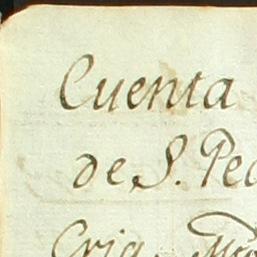 Cuenta
de S. Ped
Cria.